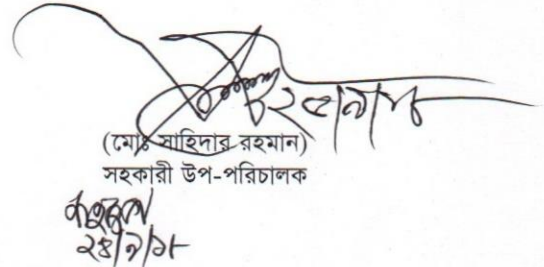 ২৫/৯/১৮
(মোঃ সাহিদার রহমান)
সহকারী উপ-পরিচালক
২৪/৯/১৮